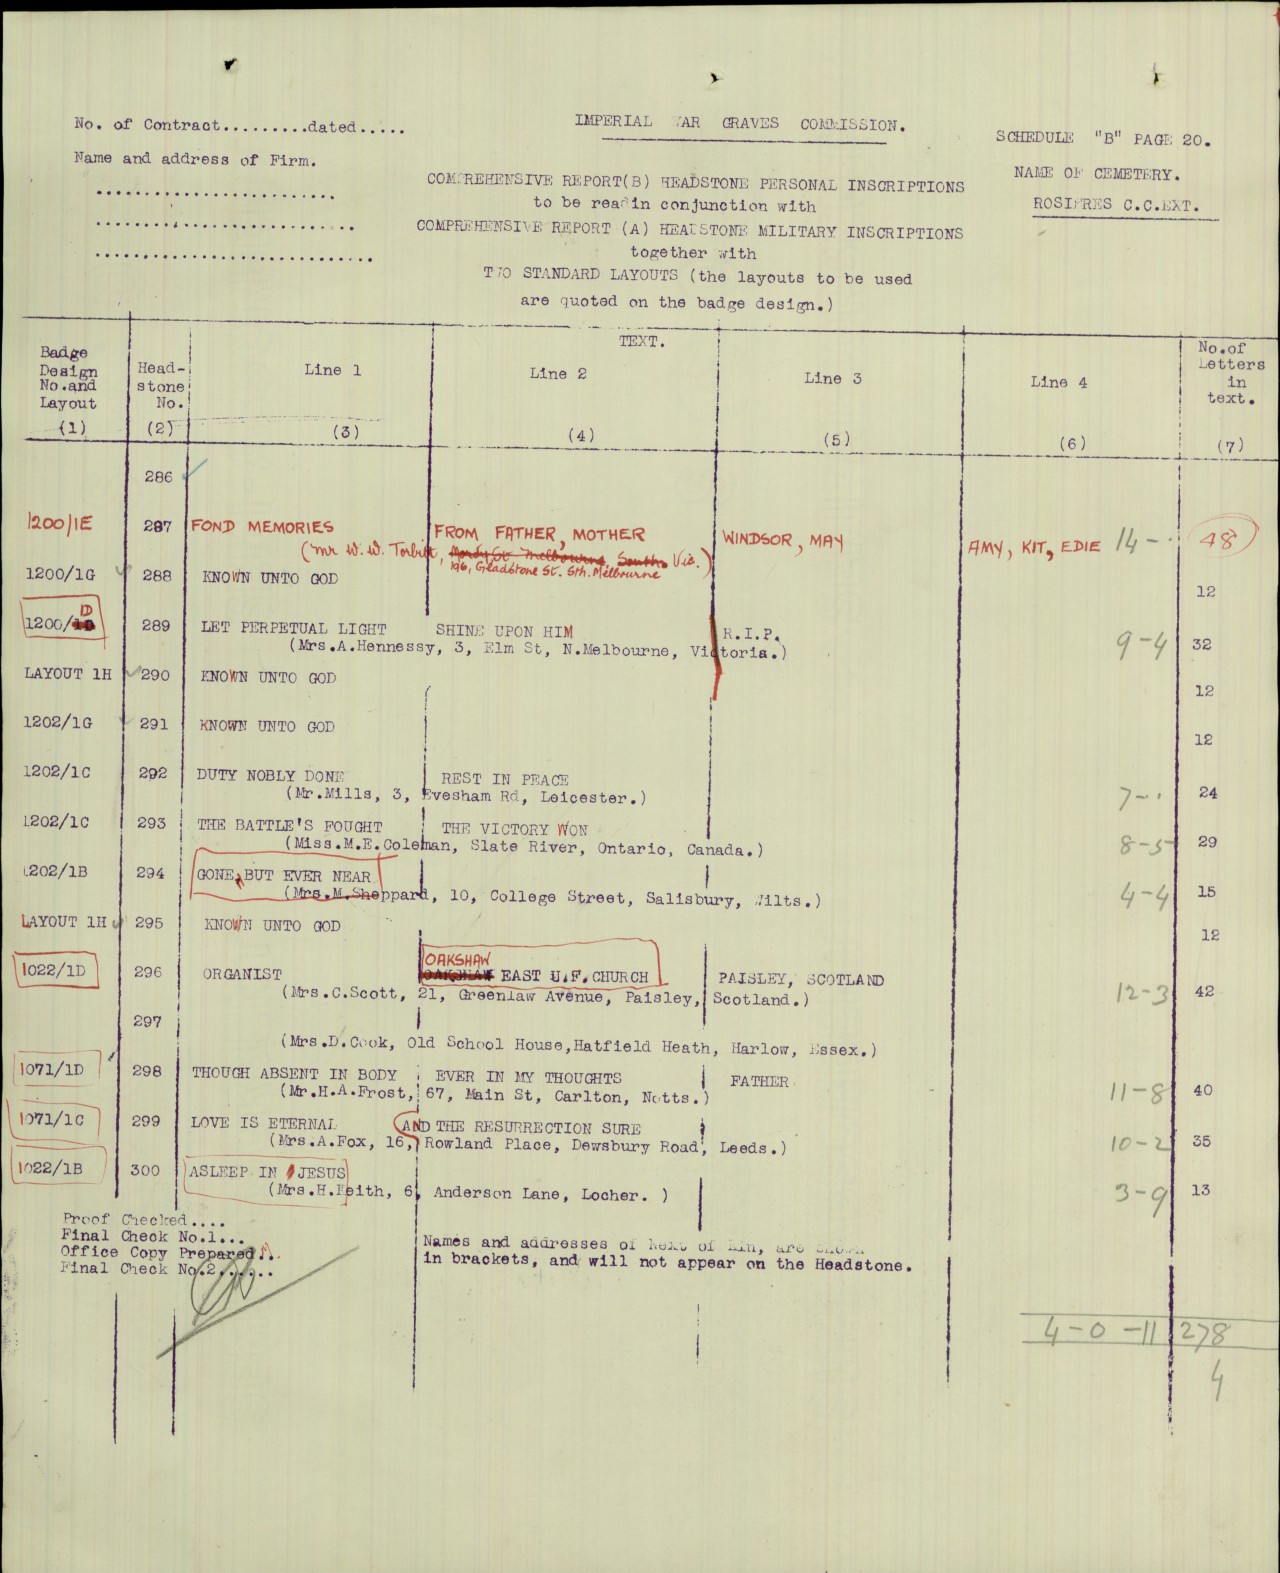 No. of Contract.........dated.....
IMPERIAL WAR GRAVES COMMISSION.
SCHEDULE "B" PAGE 20.
Name and address of Firm.
NAME OF CEMETERY.
COMPREHENSIVE REPORT(B) HEADSTONE PERSONAL INSCRIPTIONS
ROSIERES C.C.EXT.
to be readin conjunction with
COMPREHENSIVE REPORT (A) HEADSTONE MILITARY INSCRIPTIONS
together with
TWO STANDARD LAYOUTS (the layouts to be used
are quoted on the badge design.)
TEXT.
Badge Design No.and Layout
Head-stone No.
Line 1
Line 2
Line 3
Line 4
No.of Letters in text.
(1) (2) (3) (4) (5) (6) (7)
286
1200/1E 287 FOND MEMORIES FROM FATHER, MOTHER WINDSOR, MAY AMY, KIT, EDIE 14-. 48
(Mr W. W. Torbitt, Melbourne, South Vic.)
196, Gladstone St. Sth. Melbourne
1200/1G 288 KNOWN UNTO GOD 12
1200/1D 289 LET PERPETUAL LIGHT SHINE UPON HIM R.I.P. 32
(Mrs.A.Hennessy, 3, Elm St, N.Melbourne, Victoria.) 9-4
LAYOUT 1H 290 KNOWN UNTO GOD 12
1202/1G 291 KNOWN UNTO GOD 12
1202/1C 292 DUTY NOBLY DONE REST IN PEACE 24
(Mr.Mills, 3, Evesham Rd, Leicester.) 7-.
1202/1C 293 THE BATTLE'S FOUGHT THE VICTORY WON 29
(Miss.M.E.Coleman, Slate River, Ontario, Canada.) 8-5
1202/1B 294 GONE, BUT EVER NEAR 15
(Mrs.M.Sheppard, 10, College Street, Salisbury, Wilts.) 4-4
LAYOUT 1H 295 KNOWN UNTO GOD 12
OAKSHAW
1022/1D 296 ORGANIST OAKSHAW EAST U.F.CHURCH PAISLEY, SCOTLAND
(Mrs.C.Scott, 21, Greenlaw Avenue, Paisley, Scotland.) 12-3 42
297
(Mrs.D.Cook, Old School House,Hatfield Heath, Harlow, Essex.)
1071/1D 298 THOUGH ABSENT IN BODY EVER IN MY THOUGHTS FATHER
(Mr.H.A.Frost, 67, Main St, Carlton, Notts.) 11-8 40
1071/1C 299 LOVE IS ETERNAL AND THE RESURRECTION SURE
(Mrs.A.Fox, 16, Rowland Place, Dewsbury Road, Leeds.) 10-2 35
1022/1B 300 ASLEEP IN JESUS
(Mrs.H.Feith, 6, Anderson Lane, Locher. ) 3-9 13
Proof Checked....
Final Check No.1...
Office Copy Prepared...
Final Check No.2......
Names and addresses of next of kin, are shown
in brackets, and will not appear on the Headstone.
4-0-11 278
4